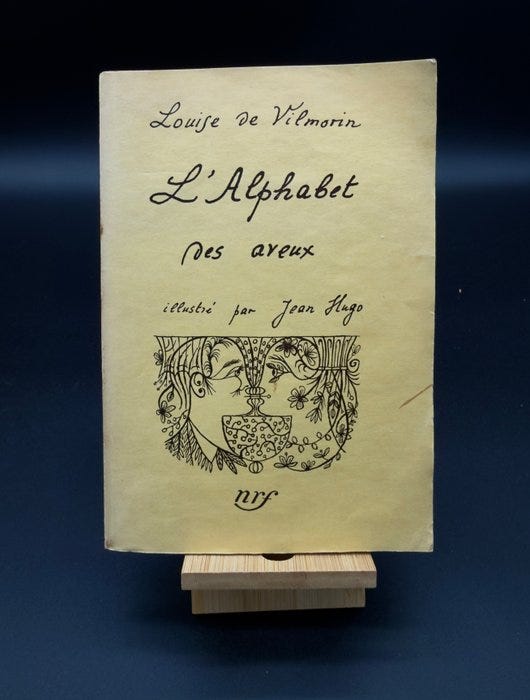 Louise de Vilmorin
L'Alphabet
des aveux
illustré par Jean Hugo
nrf